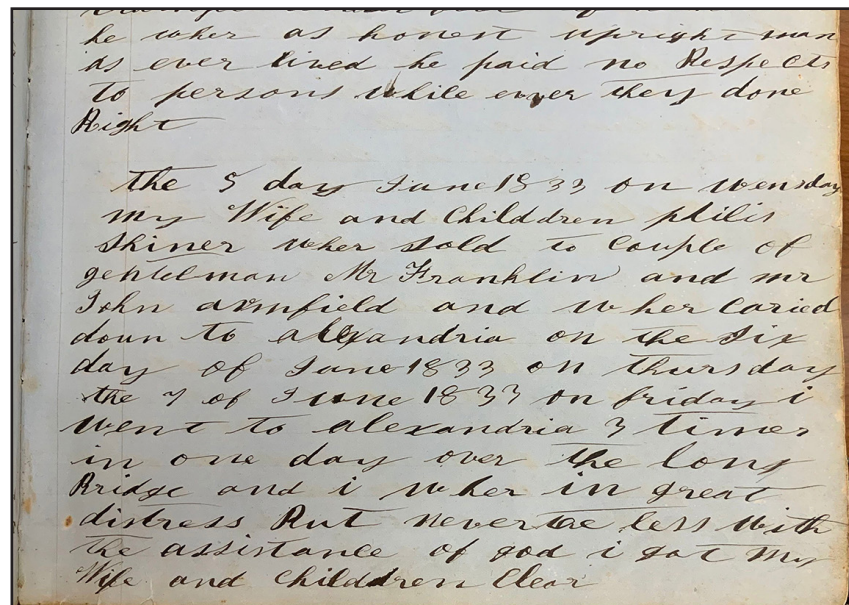 he wher as honest upright man
as ever lived he paid no Respects
to persons while ever they done
Right
the 5 day June 1833 on wensday
my Wife and Childdren philis
Shiner wher sold to Couple of
gentelman Mr Franklin and mr
John armfield and wher Caried
down to alexandria on the Six
day of June 1833 on thursday
the 7 of June 1833 on friday i
went to alexandria 3 times
in one day over the long
Bridge and i wher in great
distress But never the less with
the assistance of god i got My
Wife and Childdren Clear